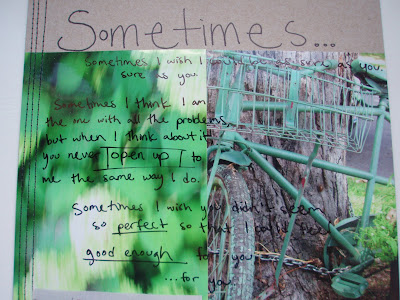 Sometimes...
Sometimes I wish I could be as sure as you.
sure as you.
Sometimes I think I am
the one with all the problems,
but when I think about it
you never open up to
me the same way I do.
Sometimes I wish you didn't seem
so perfect so that I could feel
good enough for you
...for you.